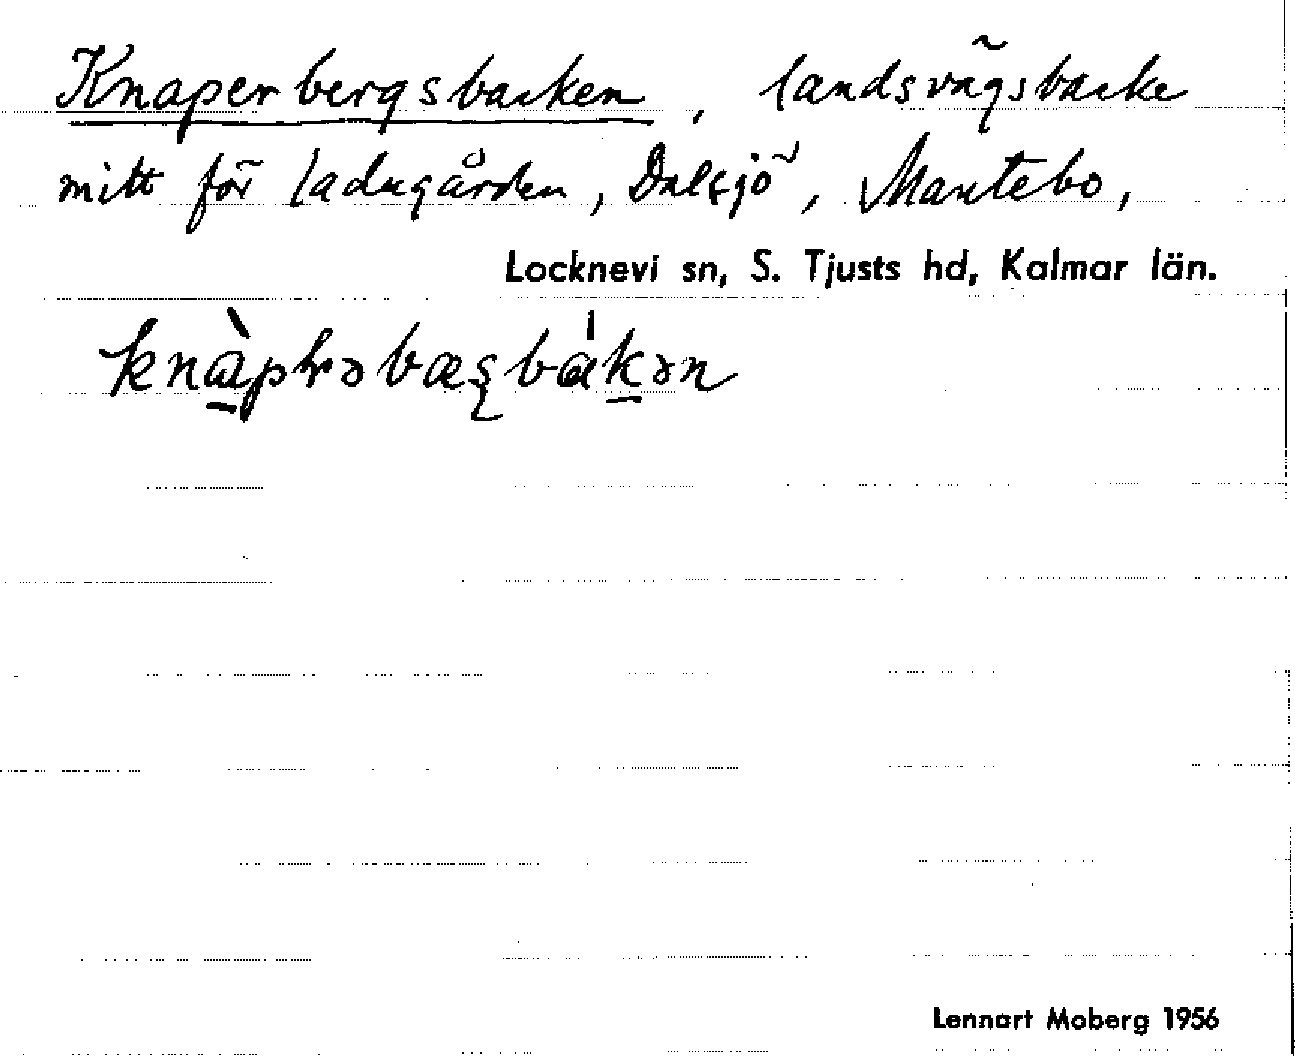 Knaperbergsbacken, landsvägsbacke
mitt för ladugården, Dalsjö, Mantebo,
Locknevi sn, S. Tjusts hd, Kalmar län.
Lennart Moberg 1956